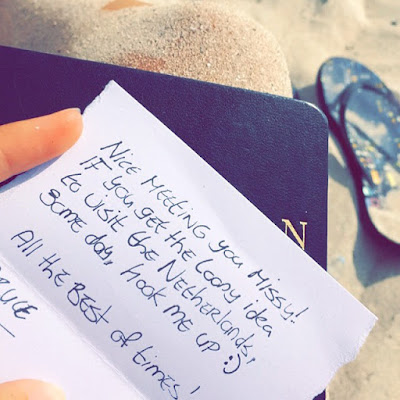 Nice meeting you Missy!
If you get the loony idea
to visit the Netherlands,
some day, hook me up :)
All the best of times!
N